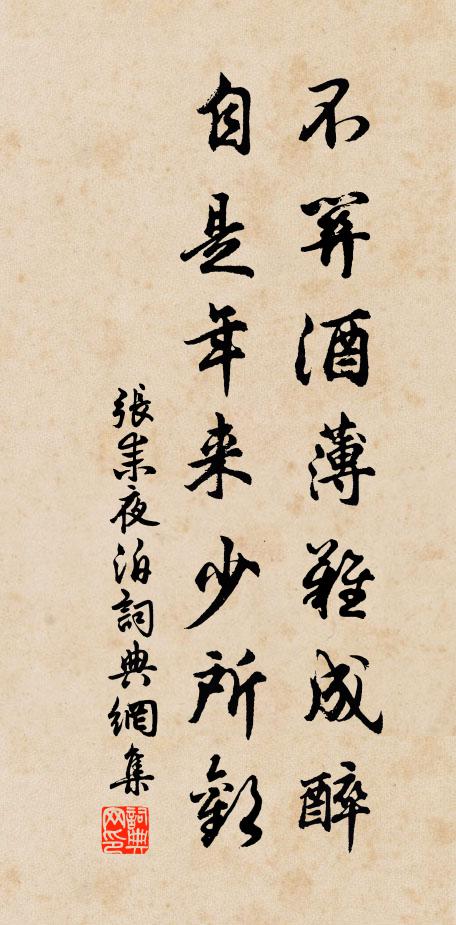 不關酒薄難成醉
自是年来少所歡
張耒夜泊詞典網集
詞典網印